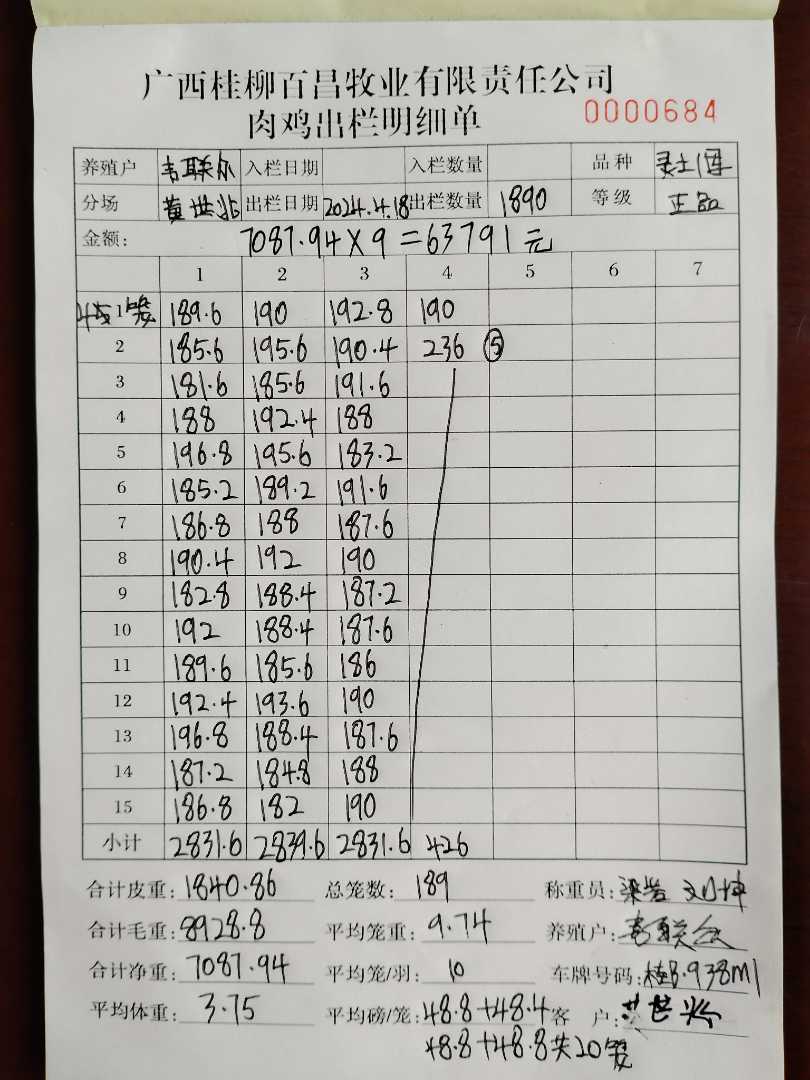 广西桂柳百昌牧业有限责任公司
肉鸡出栏明细单 0000684
养殖户 韦联尔 入栏日期 入栏数量 品种
分场 黄世 出栏日期 2024.4.18 出栏数量 1890 等级 正品
金额: 7087.94×9=63791元
1 2 3 4 5 6 7
1 189.6 190 192.8 190
2 185.6 195.6 190.4 236 ⑤
3 181.6 185.6 191.6
4 188 192.4 188
5 196.8 195.6 183.2
6 185.2 189.2 191.6
7 186.8 188 187.6
8 190.4 192 190
9 182.8 188.4 187.2
10 192 188.4 187.6
11 189.6 185.6 186
12 192.4 193.6 190
13 196.8 188.4 187.6
14 187.2 184.8 188
15 186.8 182 190
小计 2831.6 2839.6 2831.6 426
合计皮重: 1840.86 总笼数: 189 称重员:
合计毛重: 8928.8 平均笼重: 9.74 养殖户:
合计净重: 7087.94 平均笼/羽: 10 车牌号码: 桂B·938M1
平均体重: 3.75 平均磅/笼: 48.8+48.4 客户:
48.8+48.8共20笼